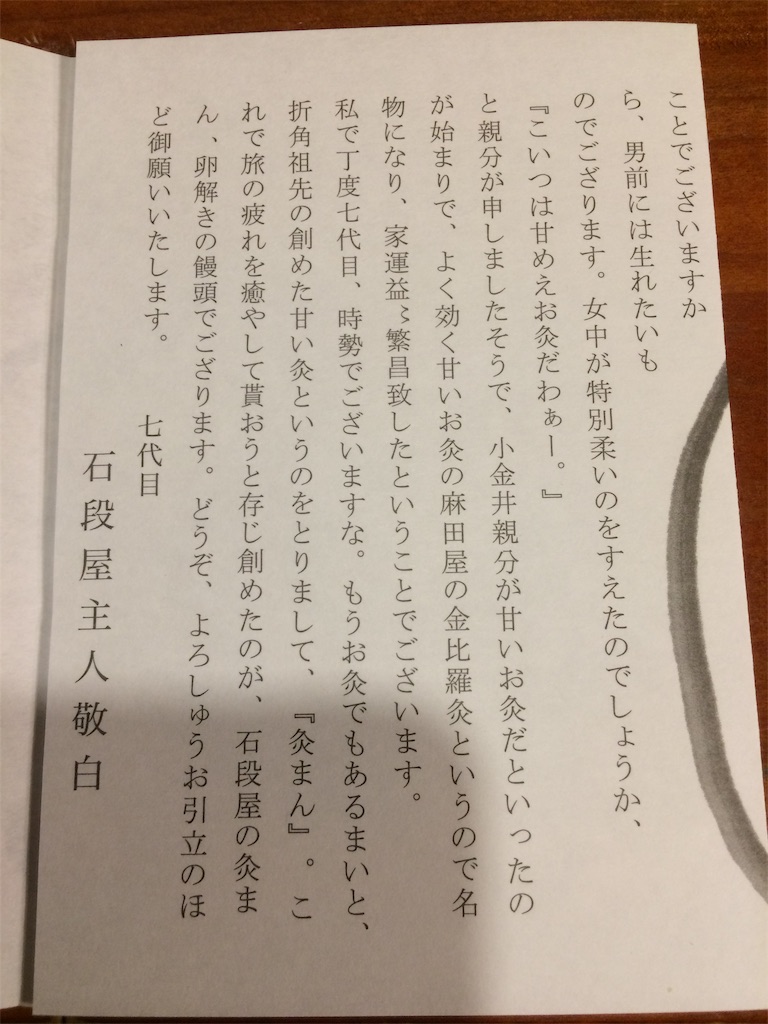 ことでございますか
ら、男前には生れたいも
のでござります。女中が特別柔いのをすえたのでしょうか、
『こいつは甘めえお灸だわぁー。』
と親分が申しましたそうで、小金井親分が甘いお灸だといったの
が始まりで、よく効く甘いお灸の麻田屋の金比羅灸というので名
物になり、家運益〻繁昌致したということでございます。
私で丁度七代目、時勢でございますな。もうお灸でもあるまいと、
折角祖先の創めた甘い灸というのをとりまして、『灸まん』。こ
れで旅の疲れを癒やして貰おうと存じ創めたのが、石段屋の灸ま
ん、卵解きの饅頭でござります。どうぞ、よろしゅうお引立のほ
ど御願いいたします。
七代目
石段屋主人敬白